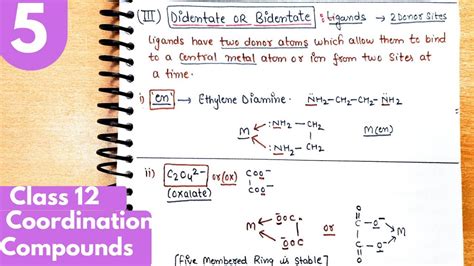 5
(III) Didentate OR Bidentate : Ligands → 2 Donor Sites
Ligands have two donor atoms which allow them to bind
to a central metal atom or ion from two sites at
a time.
i) 'en' → Ethylene Diamine. N̈H₂-CH₂-CH₂-N̈H₂
:NH₂ - CH₂
M | M(en)
:NH₂ - CH₂
ii) C₂O₄²⁻ or (ox) COO⁻
(oxalate) COO⁻
M OOC or O C-O⁻ M
OOC O C-O⁻
[Five Membered Ring is Stable]
Class 12
Coordination
Compounds